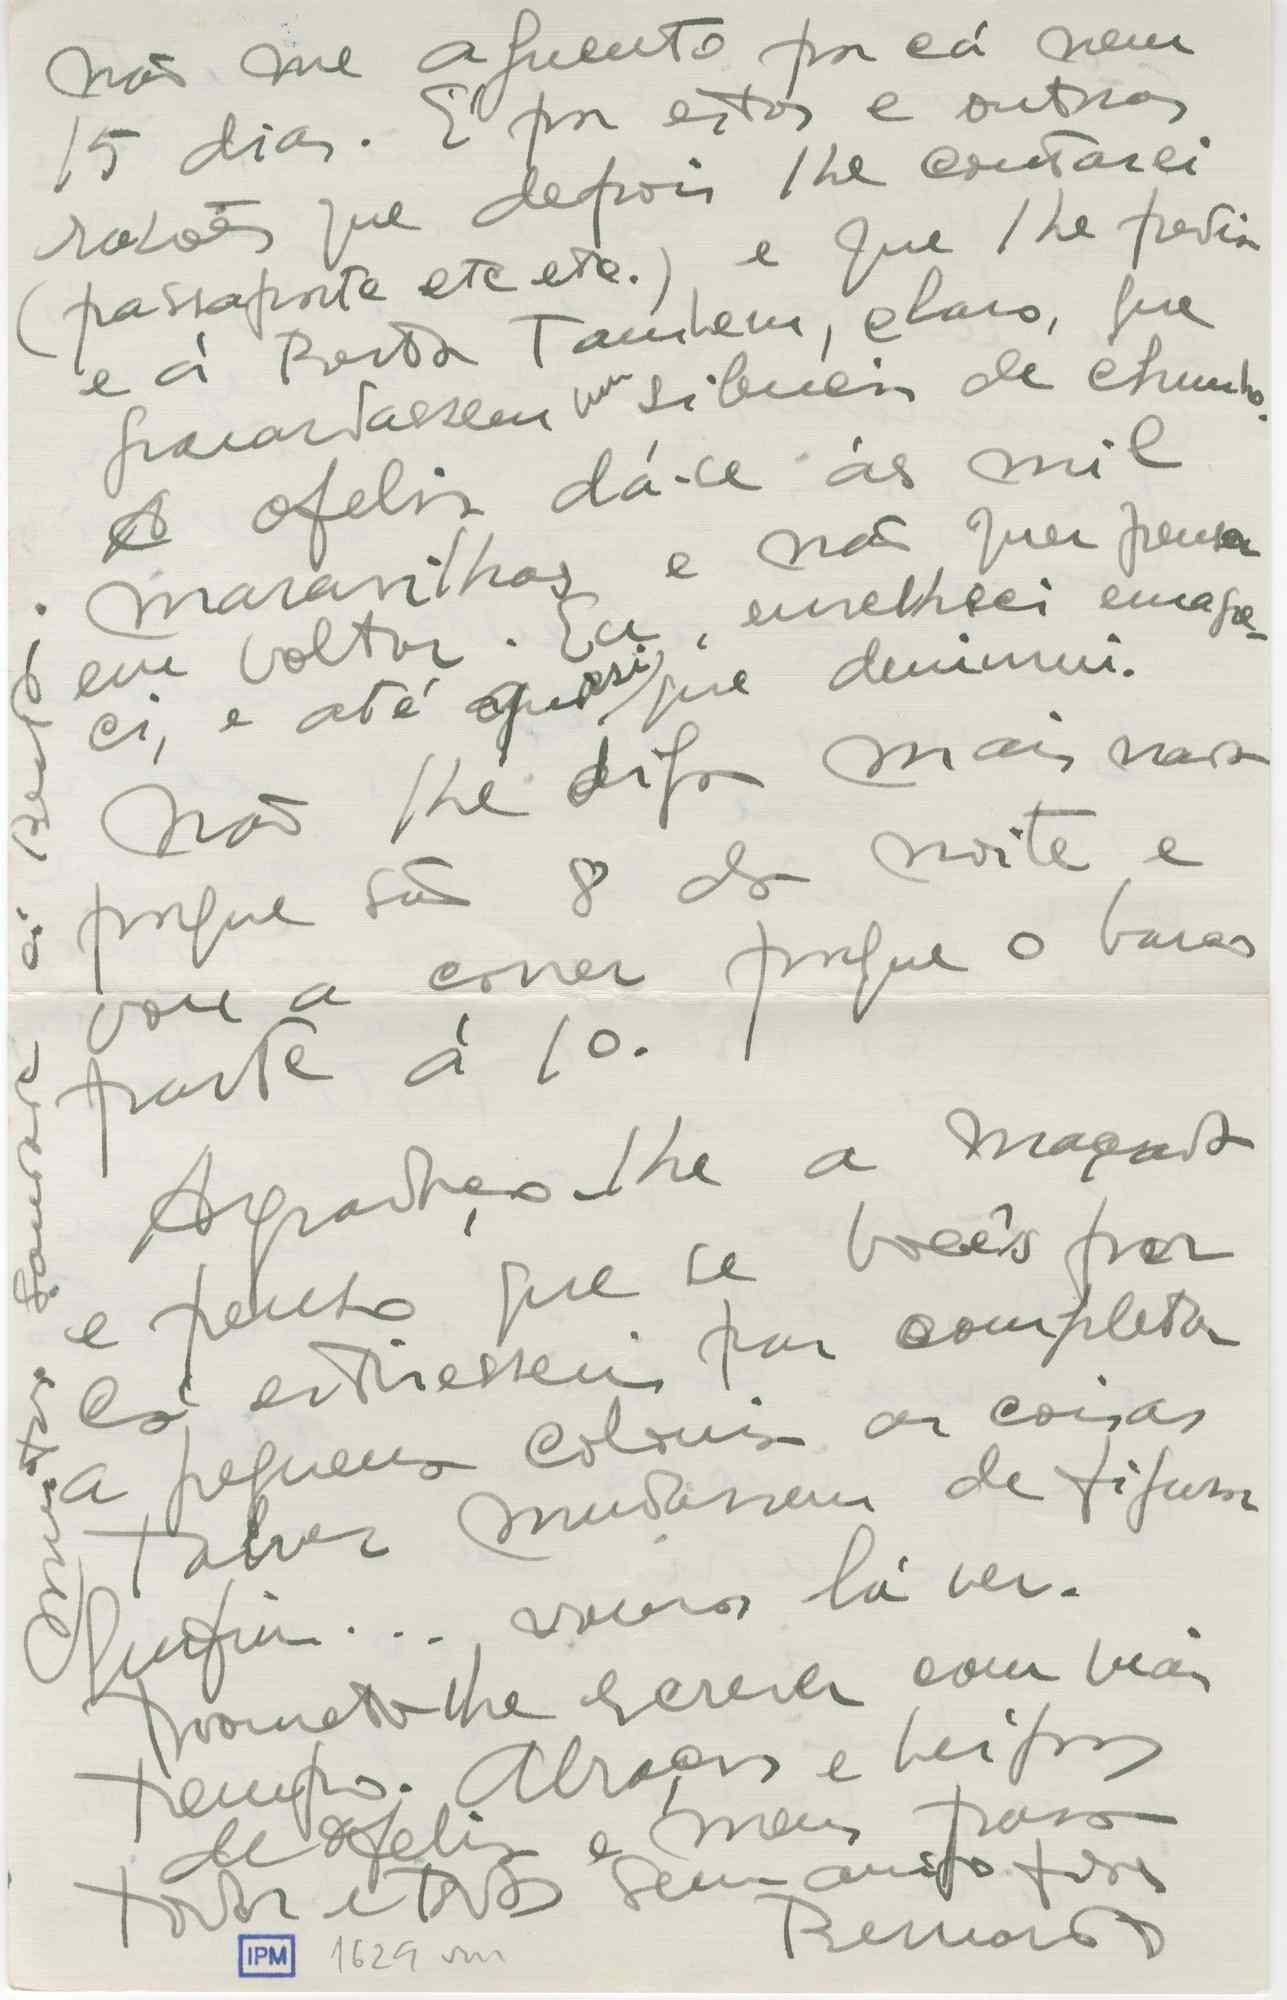 não me aguento por cá nem
15 dias. É por estas e outras
razões que depois lhe contarei
(passaporte etc etc.) e que lhe pedia
e á Berta Tambem, claro, que
guardassem um silencio de chumbo.
A Ofelia dá-se ás mil
maravilhas e não quer pensar
em voltar. Eu, envelheci emagre-
ci, e até quasi que deminui.
Não lhe digo mais nada
porque são 8 da noite e
vou a correr porque o barco
parte á 10.
Agradeço-lhe a maçada
e penso que se vocês por
cá estivessem para completar
a pequena colonia as coisas
talvez mudassem de figura
Enfim... vamos lá ver.
Prometo-lhe escrever com mais
tempo. Abraços e beijos
de Ofelia e meus para
todos e do seu amigo
Bernardo
Muitas saudades á Berta.
IPM 1629 vm